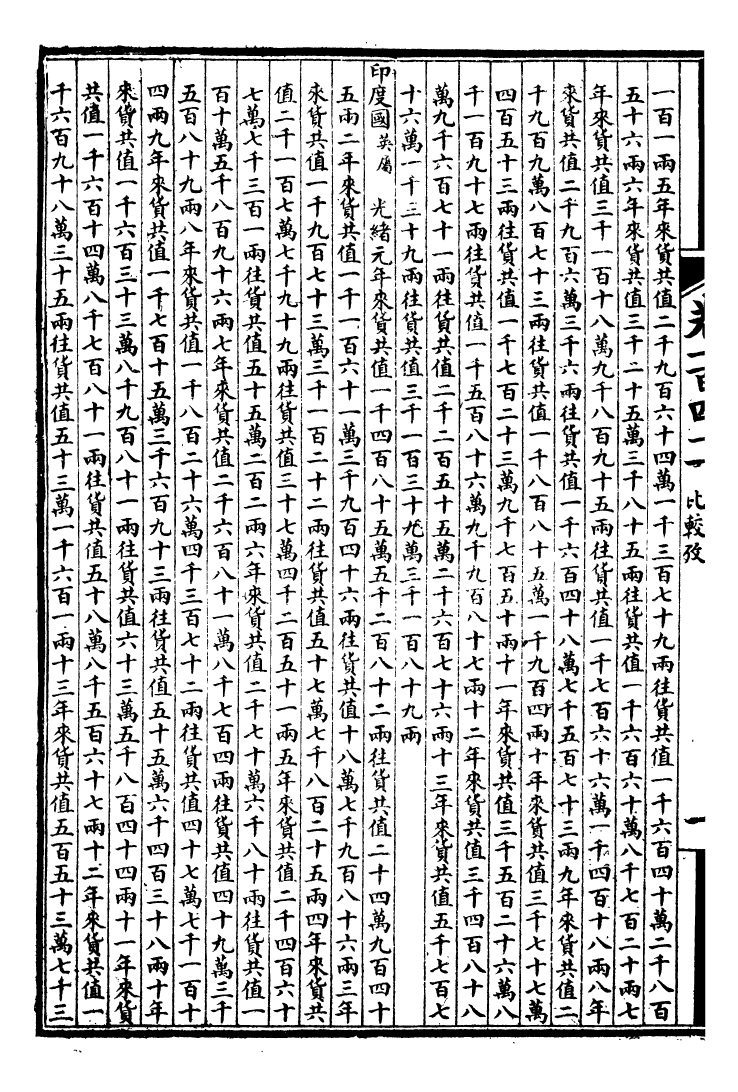 卷一百四十一 比較攷 一
一百一兩五年來貨共值二千九百六十四萬一千三百七十九兩往貨共值一千六百四十萬二千八百
五十六兩六年來貨共值三千二十五萬三千八十五兩往貨共值一千六百六十萬八千七百二十兩七
年來貨共值三千一百十八萬九千八百九十五兩往貨共值一千七百六十六萬一千四百十八兩八年
來貨共值二千九百六萬三千六兩往貨共值一千六百四十八萬七千五百七十三兩九年來貨共值二
千九百九萬八百七十三兩往貨共值一千八百八十五萬一千九百四兩十年來貨共值三千七十七萬
四百五十三兩往貨共值一千七百二十三萬九千七百五十兩十一年來貨共值三千五百二十六萬八
千一百九十七兩往貨共值一千五百八十六萬九千九百八十七兩十二年來貨共值三千四百八十八
萬九千六百七十一兩往貨共值二千二百五十五萬二千六百七十六兩十三年來貨共值五千七百七
十六萬一千三十九兩往貨共值三千一百三十九萬三千一百八十九兩
印度國英屬 光緒元年來貨共值一千四百八十五萬五千二百八十二兩往貨共值二十四萬九百四十
五兩二年來貨共值一千一百六十一萬三千九百四十六兩往貨共值十八萬七千九百八十六兩三年
來貨共值一千九百七十三萬三千一百二十二兩往貨共值五十七萬七千八百二十五兩四年來貨共
值二千一百七萬七千九十九兩往貨共值三十七萬四千二百五十一兩五年來貨共值二千四百六十
七萬七千三百一兩往貨共值五十五萬二百二兩六年來貨共值二千七十萬六千八十兩往貨共值一
百十萬五千八百九十六兩七年來貨共值二千六百八十一萬八千七百四兩往貨共值四十九萬三千
五百八十九兩八年來貨共值一千八百二十六萬四千三百七十二兩往貨共值四十七萬七千一百十
四兩九年來貨共值一千七百十五萬三千六百九十三兩往貨共值五十五萬六千四百三十八兩十年
來貨共值一千六百三十三萬八千九百八十一兩往貨共值六十三萬五千八百四十四兩十一年來貨
共值一千六百十四萬八千七百八十一兩往貨共值五十八萬八千五百六十七兩十二年來貨共值一
千六百九十八萬三十五兩往貨共值五十三萬一千六百一兩十三年來貨共值五百五十三萬七千三